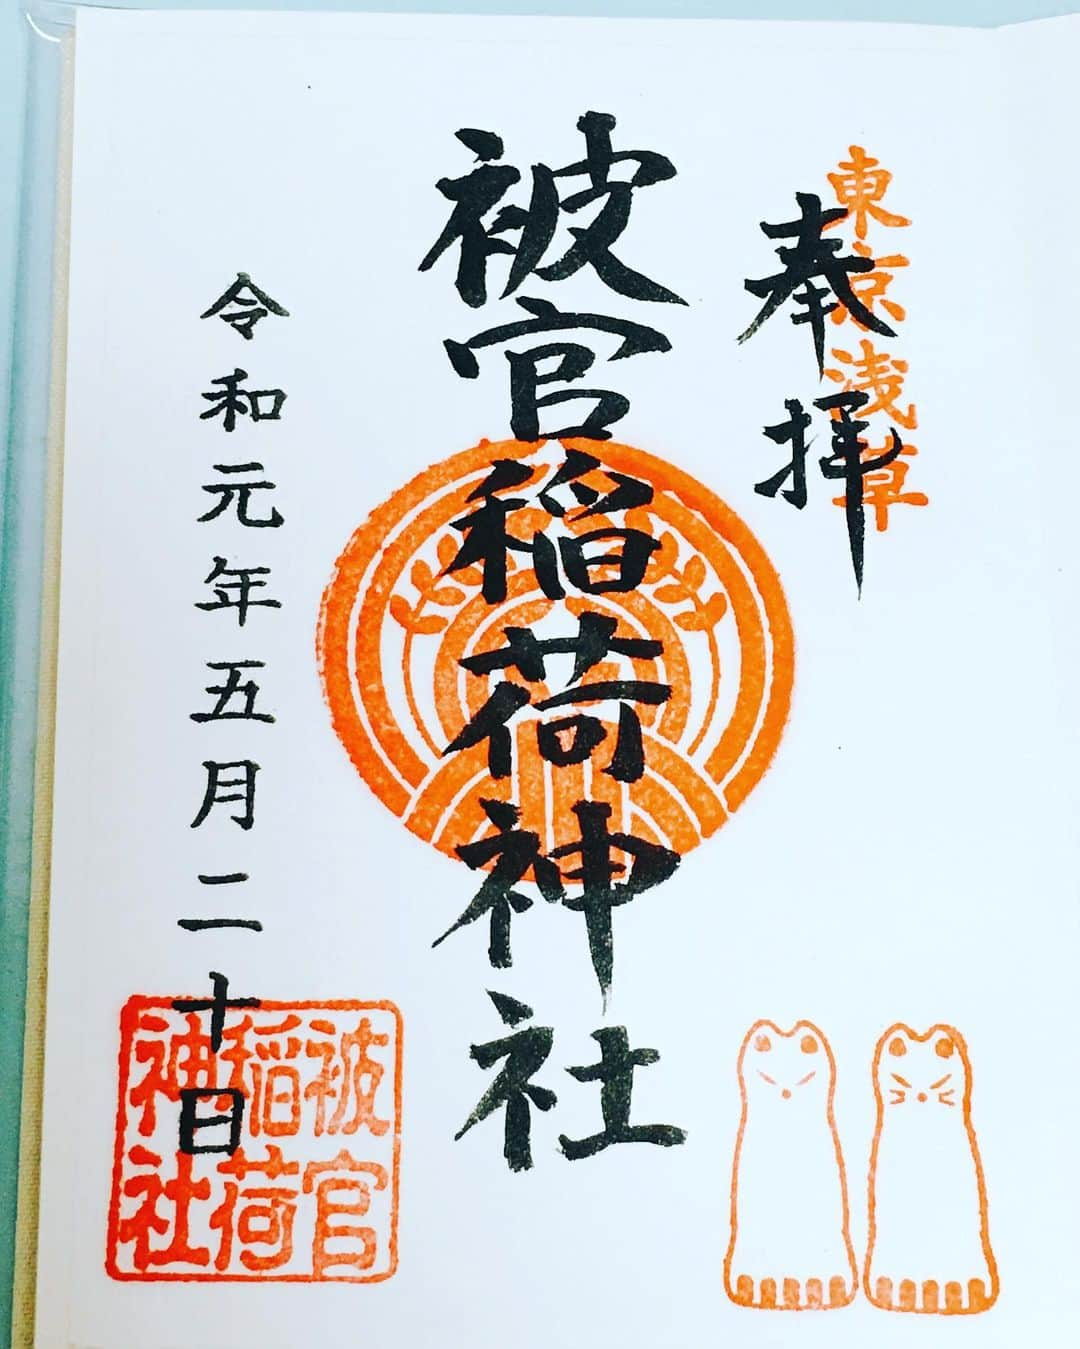 東京浅草
奉拝
被官稲荷神社
令和元年五月二十日
被官
稲荷
神社